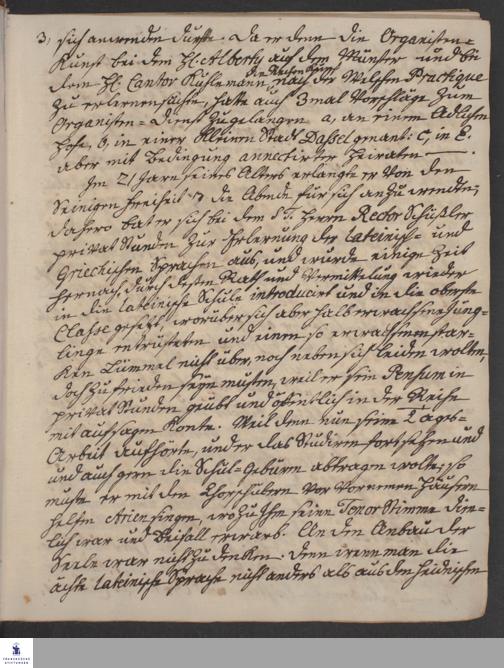 3, sich anwenden durfte. Da er denn die Organisten-
Kunst bei dem H. Alberty auf dem Münster und bei
dem H. Cantor Kuhlemann nach der Welschen Practique
zu erlernen suchte, hatte auch 3mal Vorschläge zum
Organisten-Dienst zu gelangen a, an einem Adlichen
Hofe, b, in einer kleinen Stadt Dassel genant: c, in E.
aber mit Bedingung annectirter Heiraten —.
Im 21 Jare seines Alters erlangte er von den
Seinigen Freiheit die Abende für sich anzuwenden;
dahero bat er sich bei dem S. T. Herrn Rector Schüßler
privat Stunden zur Erlernung der lateinisch- und
Griechischen Sprachen aus, und wurde einige Zeit
hernach, durch dessen Rath und Vermittelung wieder
in die lateinische Schule introducirt und in die oberste
Classe gesetzt, worüber sich aber halb erwachsene Jüng-
linge entrüsteten und einen so erwachsenen star-
ken Lümmel nicht über, noch neben sich leiden wolten,
doch zufrieden seyn musten, weil er sein Pensum in
privat Stunden geübt und öffentlich in der Reihe
mit aufsagen konte. Weil denn nun seine Tages-
Arbeit aufhörte, und er das Studiren fortsetzen und
und auch gern die Schul-Gebüren abtragen wolte; so
muste er mit den Chorschülern vor Vornemen Häusern
helfen Arien singen, wozu ihm seine Tenor Stimme dien-
lich war und Beifall erwarb. An den Anbau der
Seele war nicht zu denken. Denn wenn man die
ächte lateinische Sprache nicht anders als aus den heidnischen
FRANCKESCHE
STIFTUNGEN